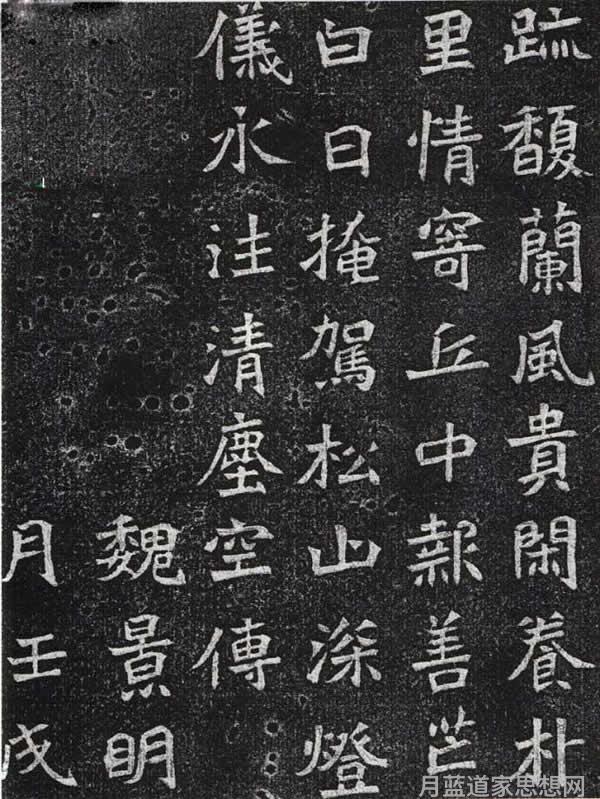 䟽馥蘭風貴閑養朴
里情寄丘中報善芒
白日掩駕松山深燈
儀永注清塵空傳
魏景明
月壬戌
月蓝道家思想网